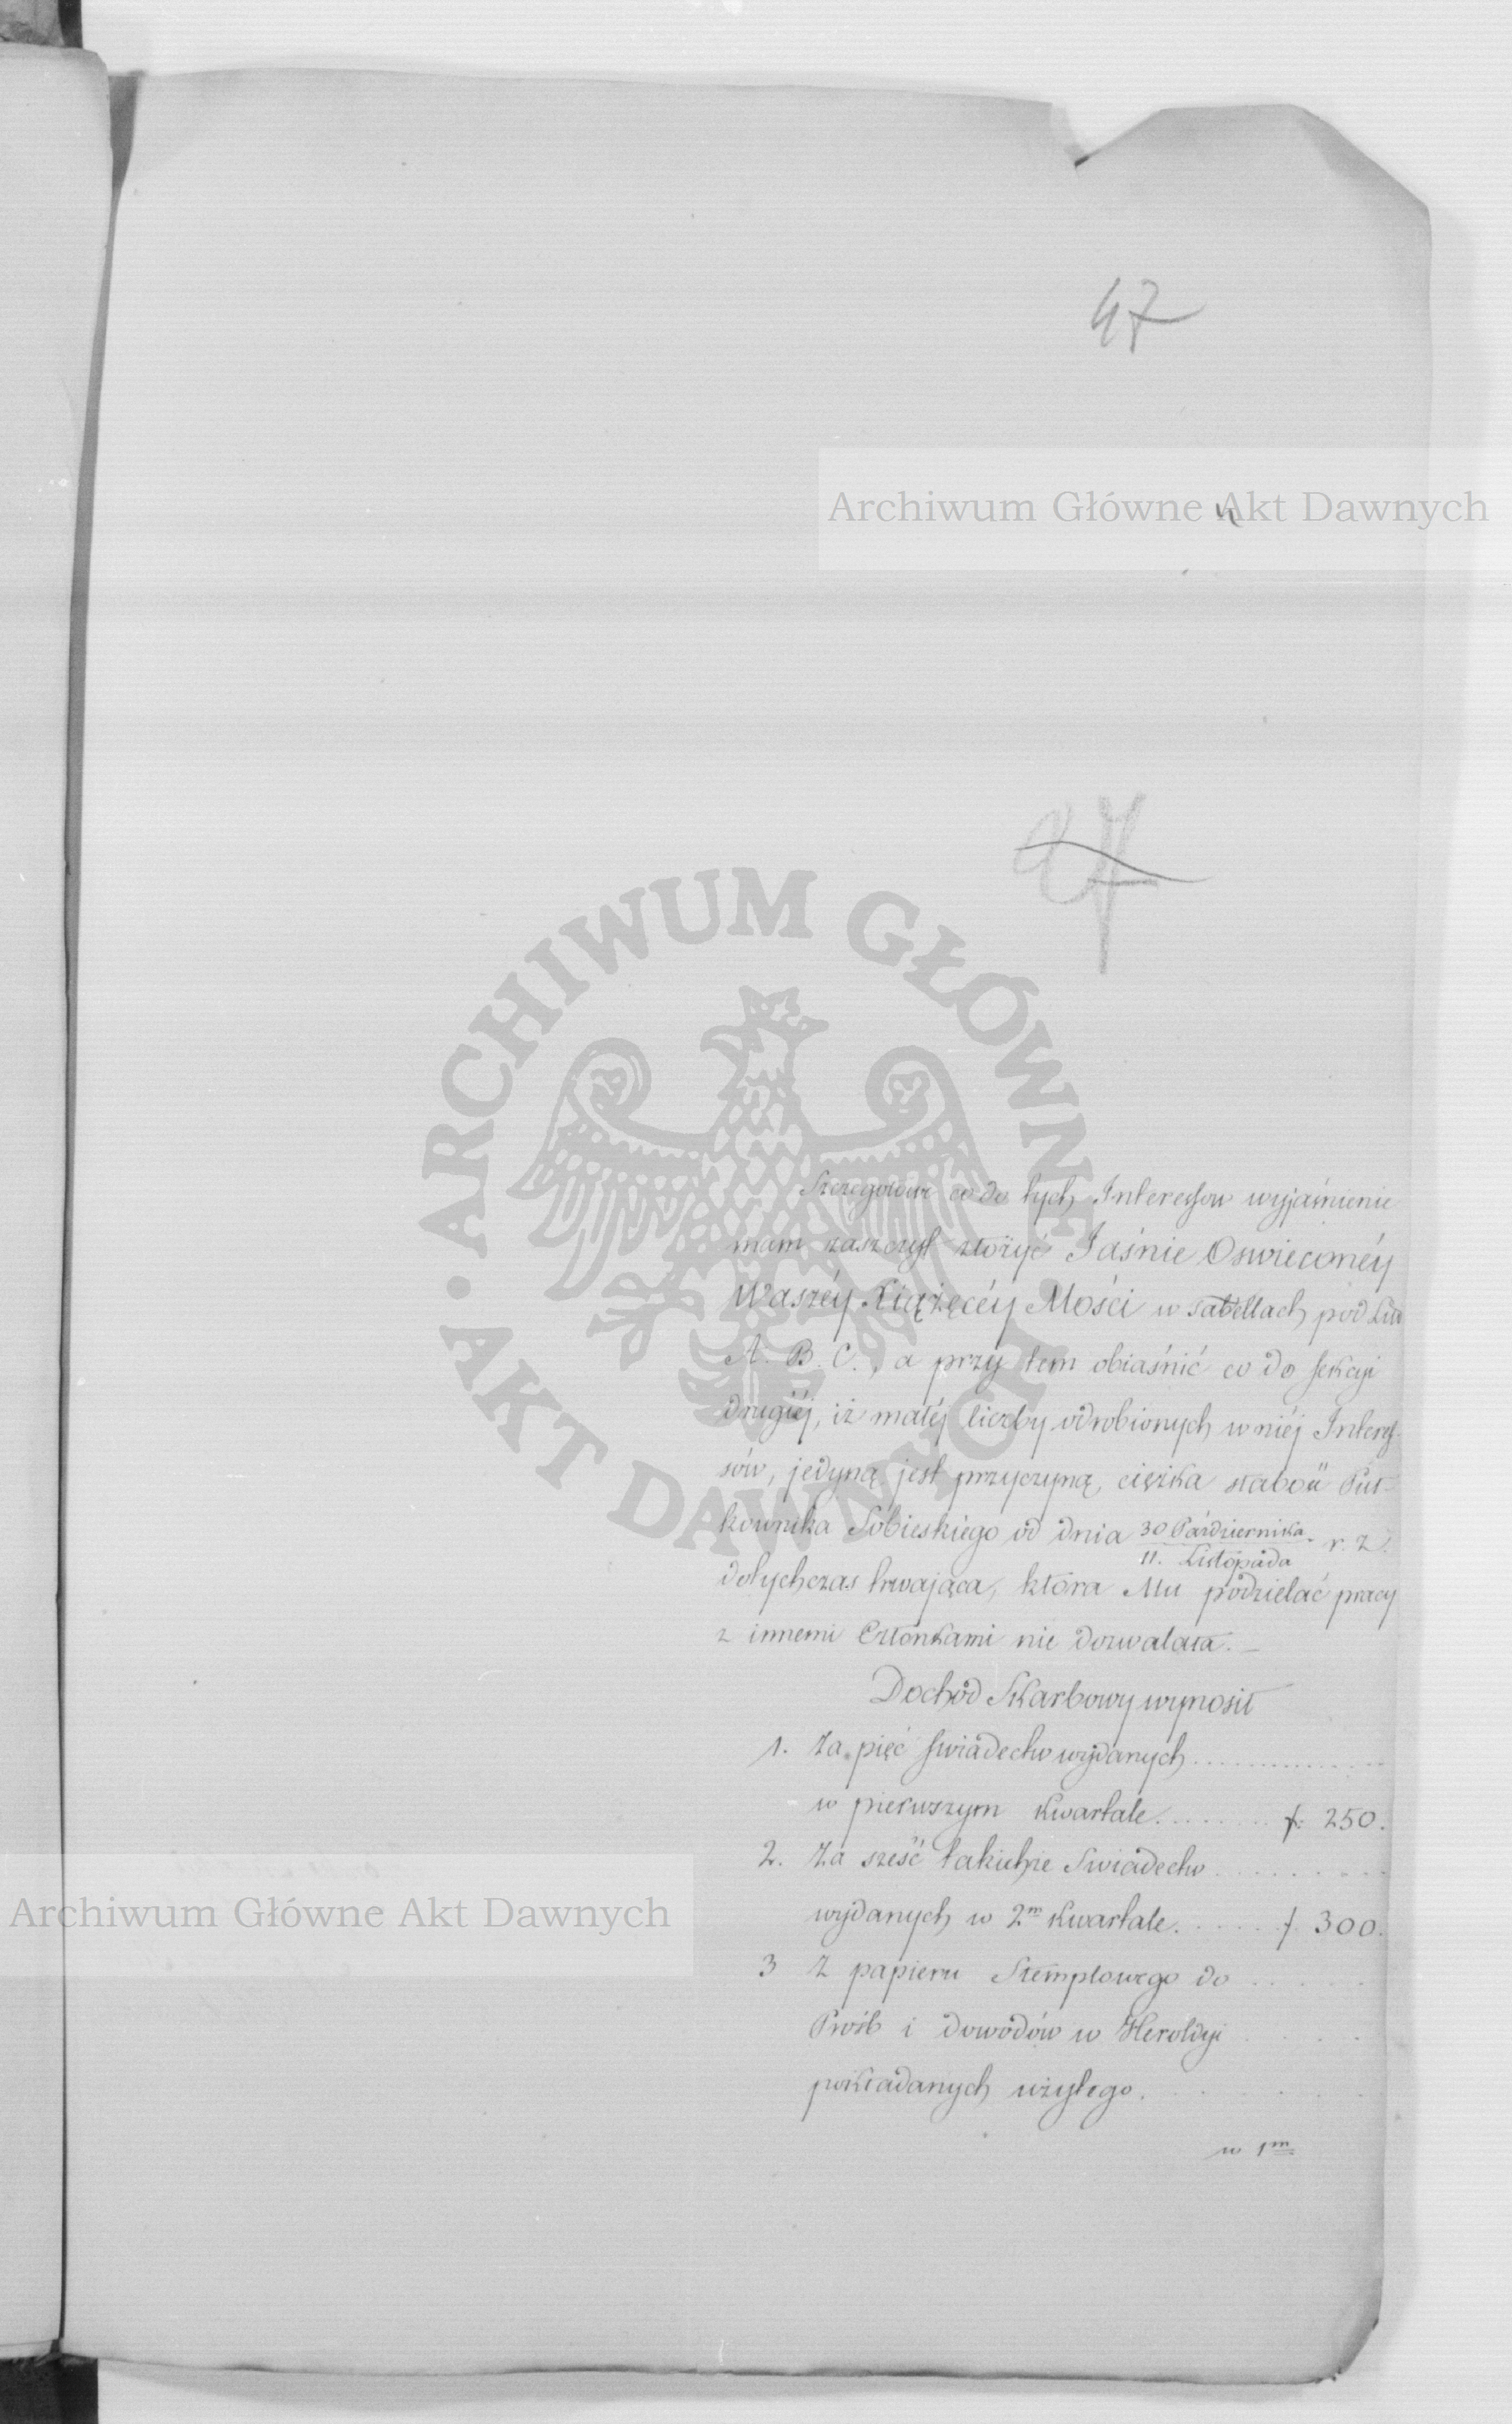 47
Archiwum Główne Akt Dawnych
4
27
ARCHIWUM GŁÓWNE AKT DAWNYCH
Szczegółowe co do tych Interessow wyjaśnienie
mam zaszczyt złożyć Jaśnie Oswieconéy
Waszéy Xiążęcéy Mości w Tabellach pod Litt
A. B. C., a przy tem obiaśnić co do sekcyi
drugiéj, iż małéj liczby odrobionych w niéj Interes-
sów, jedyną jest przyczyną, ciężka słabość Puł-
kownika Sobieskiego od dnia 30 Października / 11. Listopada r. z.
dotychczas trwająca, która Mu podzielać pracy
z innemi Członkami nie dozwalała. —
Dochód Skarbowy wynosił
1. Za pięć swiadectw wydanych ..............
w pierwszym kwartale. ....... f. 250.
2. Za sześć takichże Swiadectw .........
wydanych w 2m kwartale. ...... f. 300.
3 Z papieru Stemplowego do .....
Prośb i dowodów w Heroldyi ....
składanych użytego. .....
w 1m
Archiwum Główne Akt Dawnych